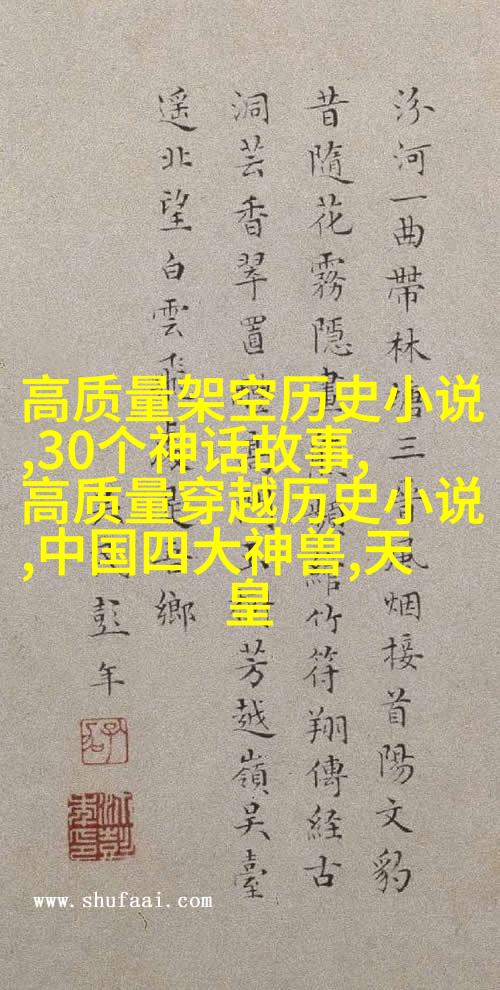 高质量架空历史小说
,30个神话故事,
高质量穿越历史小说
,中国四大神兽,天
皇
汾河一曲帶林塘三晉風烟接首陽文豹
昔隨花霧隱畫綰竹符翔傳經古
洞芸香翠置芳越嶺吴臺
遥北望白雲飛是鄉
彭年
www.shufaai.com